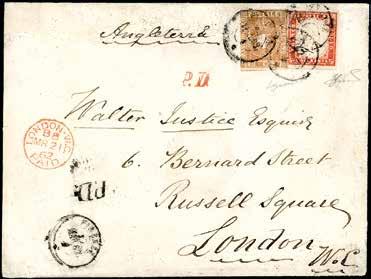 Angleterre
P.D.
Walter Justice Esquire
LONDON-W.C
MR 21
62
PAID
6. Bernard Street
P.D.
Russell Square
London
W.C